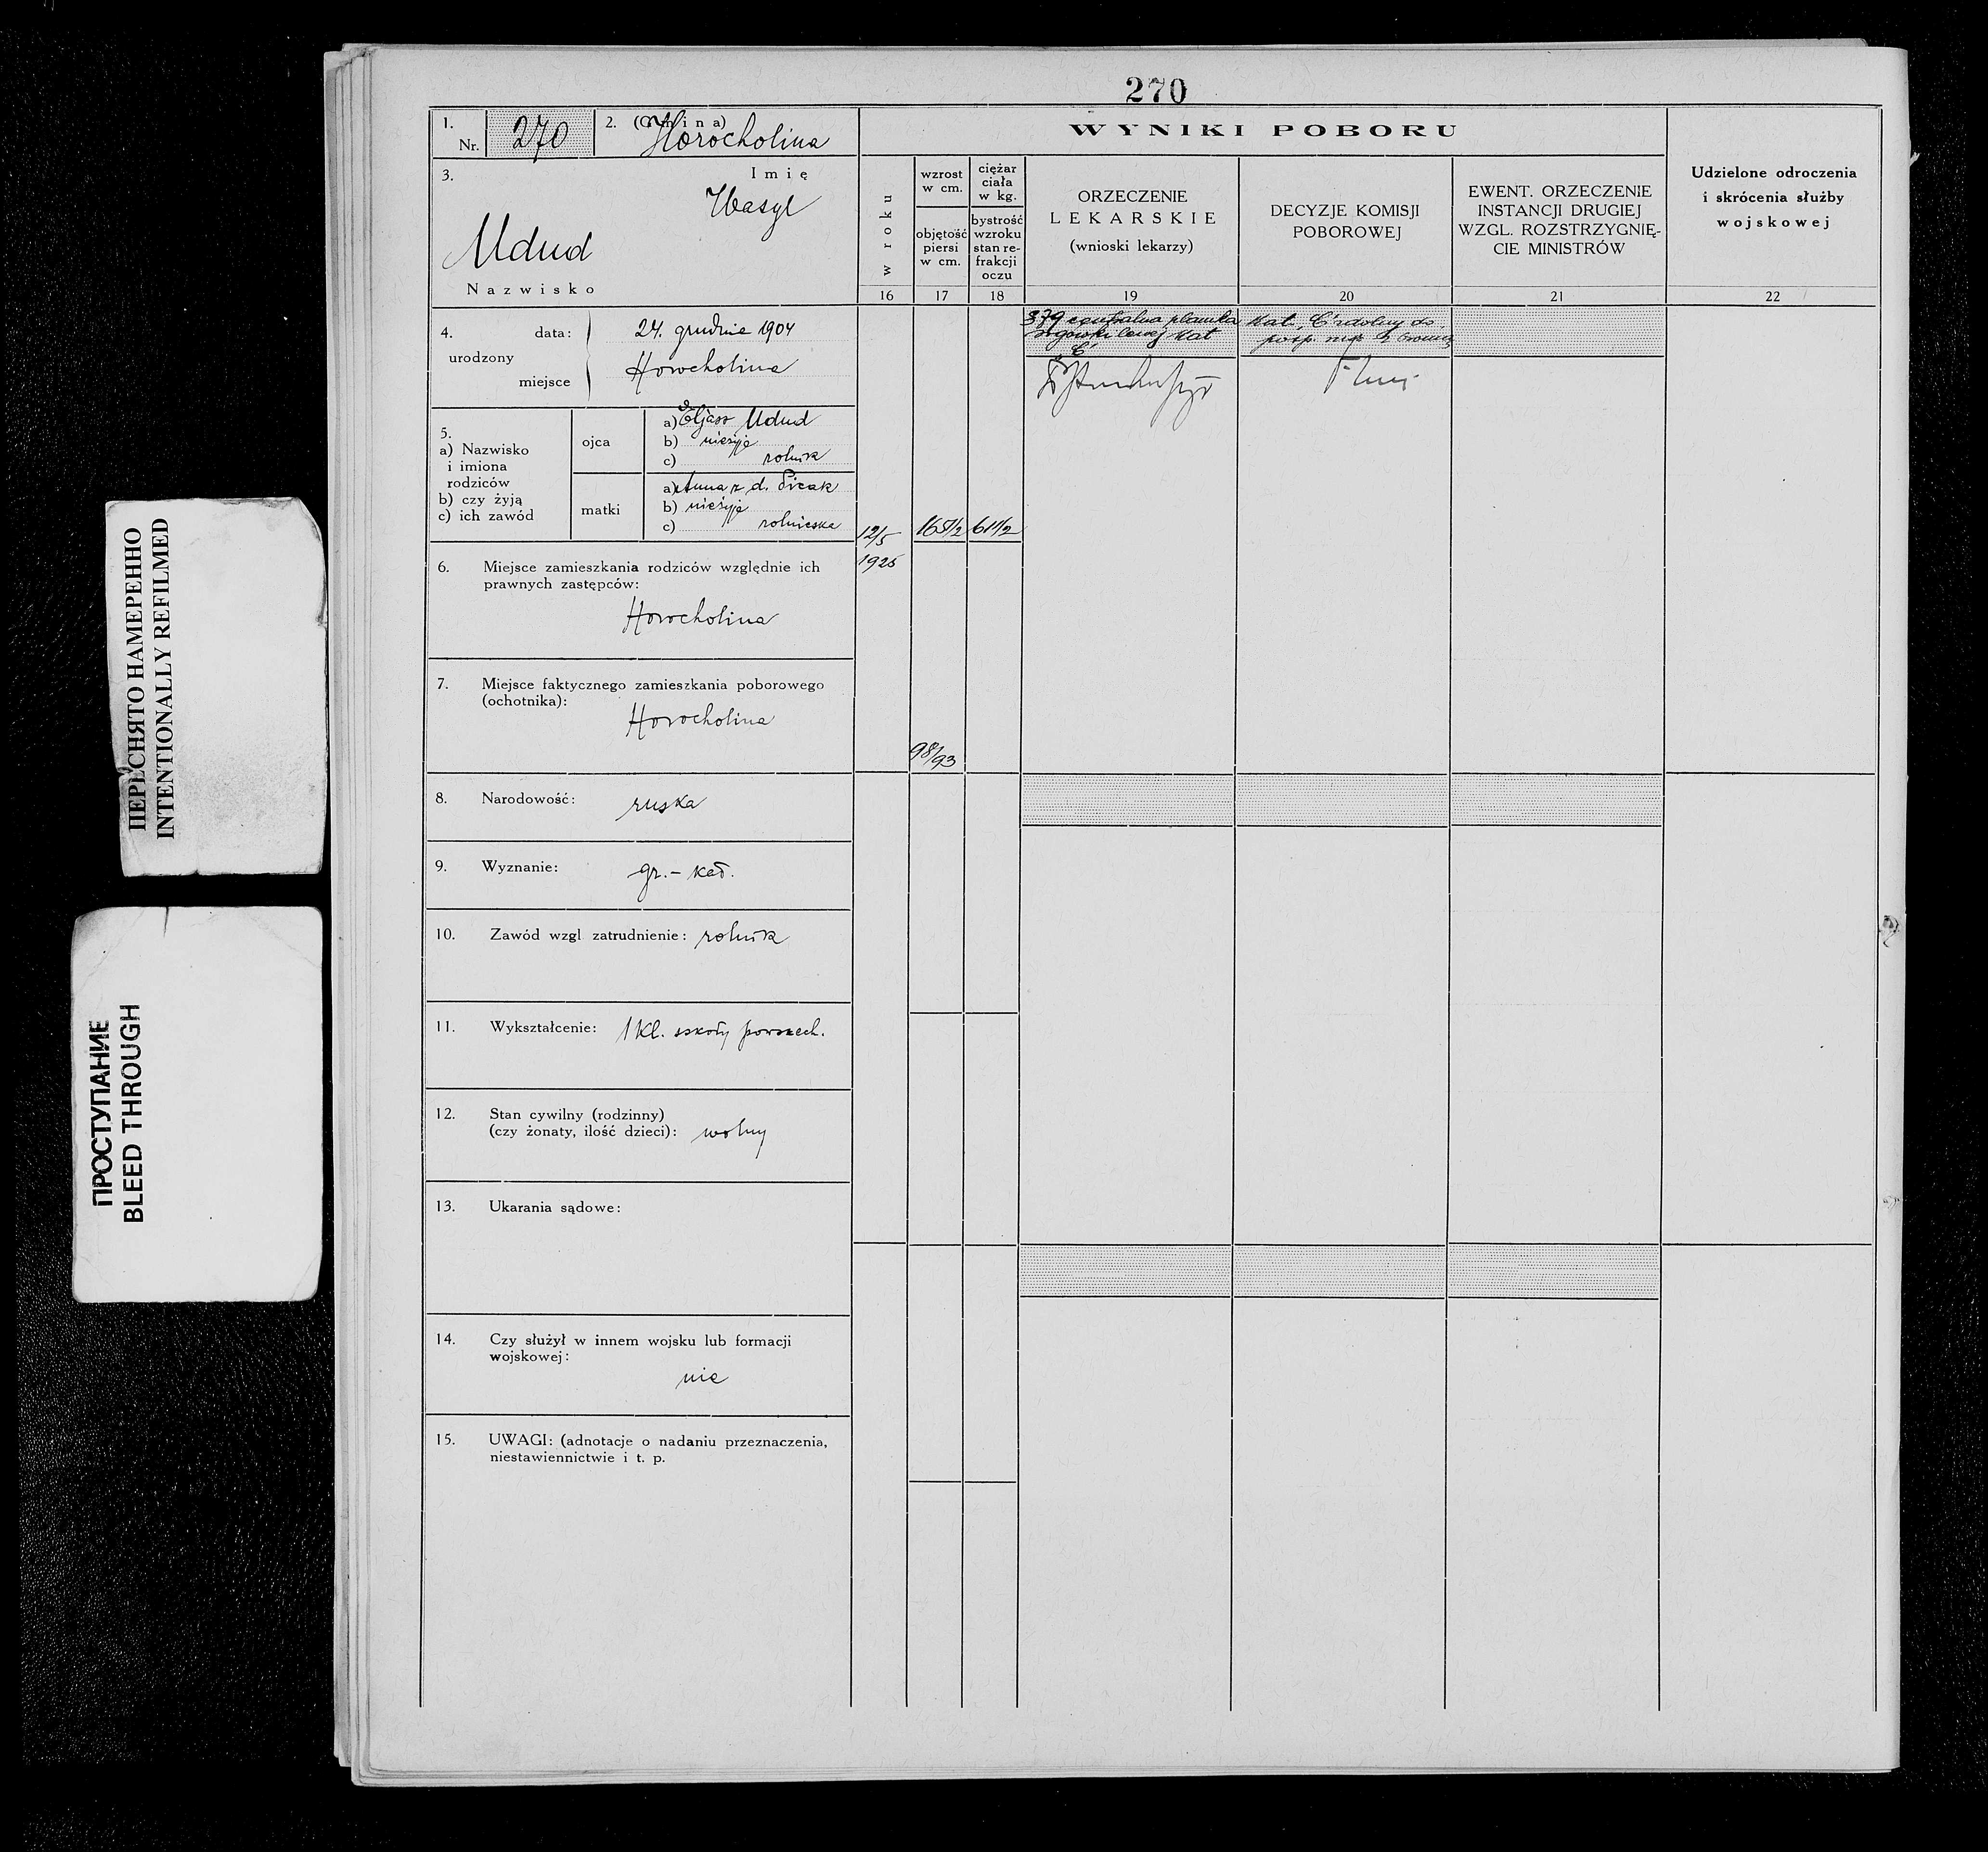 270
1.
Nr. 270
2. (Gmina)
Horocholina
3.
Imię
Wasyl
Udud
Nazwisko
4.
urodzony
data: 24. grudnia 1904
miejsce Horocholina
5.
a) Nazwisko
i imiona
rodziców
b) czy żyją
c) ich zawód
ojca
a) Eljasz Udud
b) nieżyje
c) rolnik
matki
a) Anna z d.
b) nieżyje
c) rolniczka
6. Miejsce zamieszkania rodziców względnie ich
prawnych zastępców:
Horocholina
7. Miejsce faktycznego zamieszkania poborowego
(ochotnika):
Horocholina
8. Narodowość: ruska
9. Wyznanie: gr.-kat.
10. Zawód wzgl. zatrudnienie: rolnik
11. Wykształcenie: 1 kl. szkoły powszech.
12. Stan cywilny (rodzinny)
(czy żonaty, ilość dzieci): wolny
13. Ukarania sądowe:
14. Czy służył w innem wojsku lub formacji
wojskowej:
nie
15. UWAGI: (adnotacje o nadaniu przeznaczenia,
niestawiennictwie i t. p.
WYNIKI POBORU
w roku
16
12/5
1925
wzrost
w cm.
objętość
piersi
w cm.
17
98/93
ciężar
ciała
w kg.
bystrość
wzroku
stan re-
frakcji
oczu
18
61 1/2
ORZECZENIE
LEKARSKIE
(wnioski lekarzy)
19
379 centralna plamka
rogówki lewej Kat
C
DECYZJE KOMISJI
POBOROWEJ
20
Kat. C zdolny do
posp. rusz. z bronią
EWENT. ORZECZENIE
INSTANCJI DRUGIEJ
WZGL. ROZSTRZYGNIĘ-
CIE MINISTRÓW
21
Udzielone odroczenia
i skrócenia służby
wojskowej
22
ПЕРЕСНЯТО НАМЕРЕННО
INTENTIONALLY REFILMED
ПРОСТУПАНИЕ
BLEED THROUGH